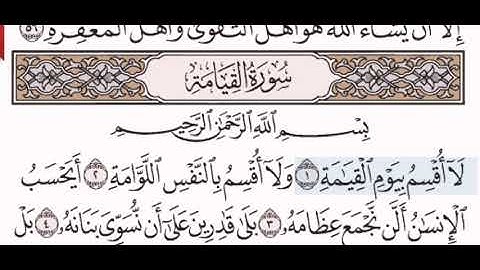 إِلَّا أَن يَشَاءَ اللَّهُ هُوَ أَهْلُ التَّقْوَىٰ وَأَهْلُ الْمَغْفِرَةِ ٥٦
سُورَةُ القِيَامَةِ
بِسْمِ اللَّهِ الرَّحْمَٰنِ الرَّحِيمِ
لَا أُقْسِمُ بِيَوْمِ الْقِيَٰمَةِ ١ وَلَا أُقْسِمُ بِالنَّفْسِ اللَّوَّامَةِ ٢ أَيَحْسَبُ
الْإِنسَٰنُ أَلَّن نَّجْمَعَ عِظَامَهُۥ ٣ بَلَىٰ قَٰدِرِينَ عَلَىٰ أَن نُّسَوِّىَ بَنَانَهُۥ ٤ بَلْ